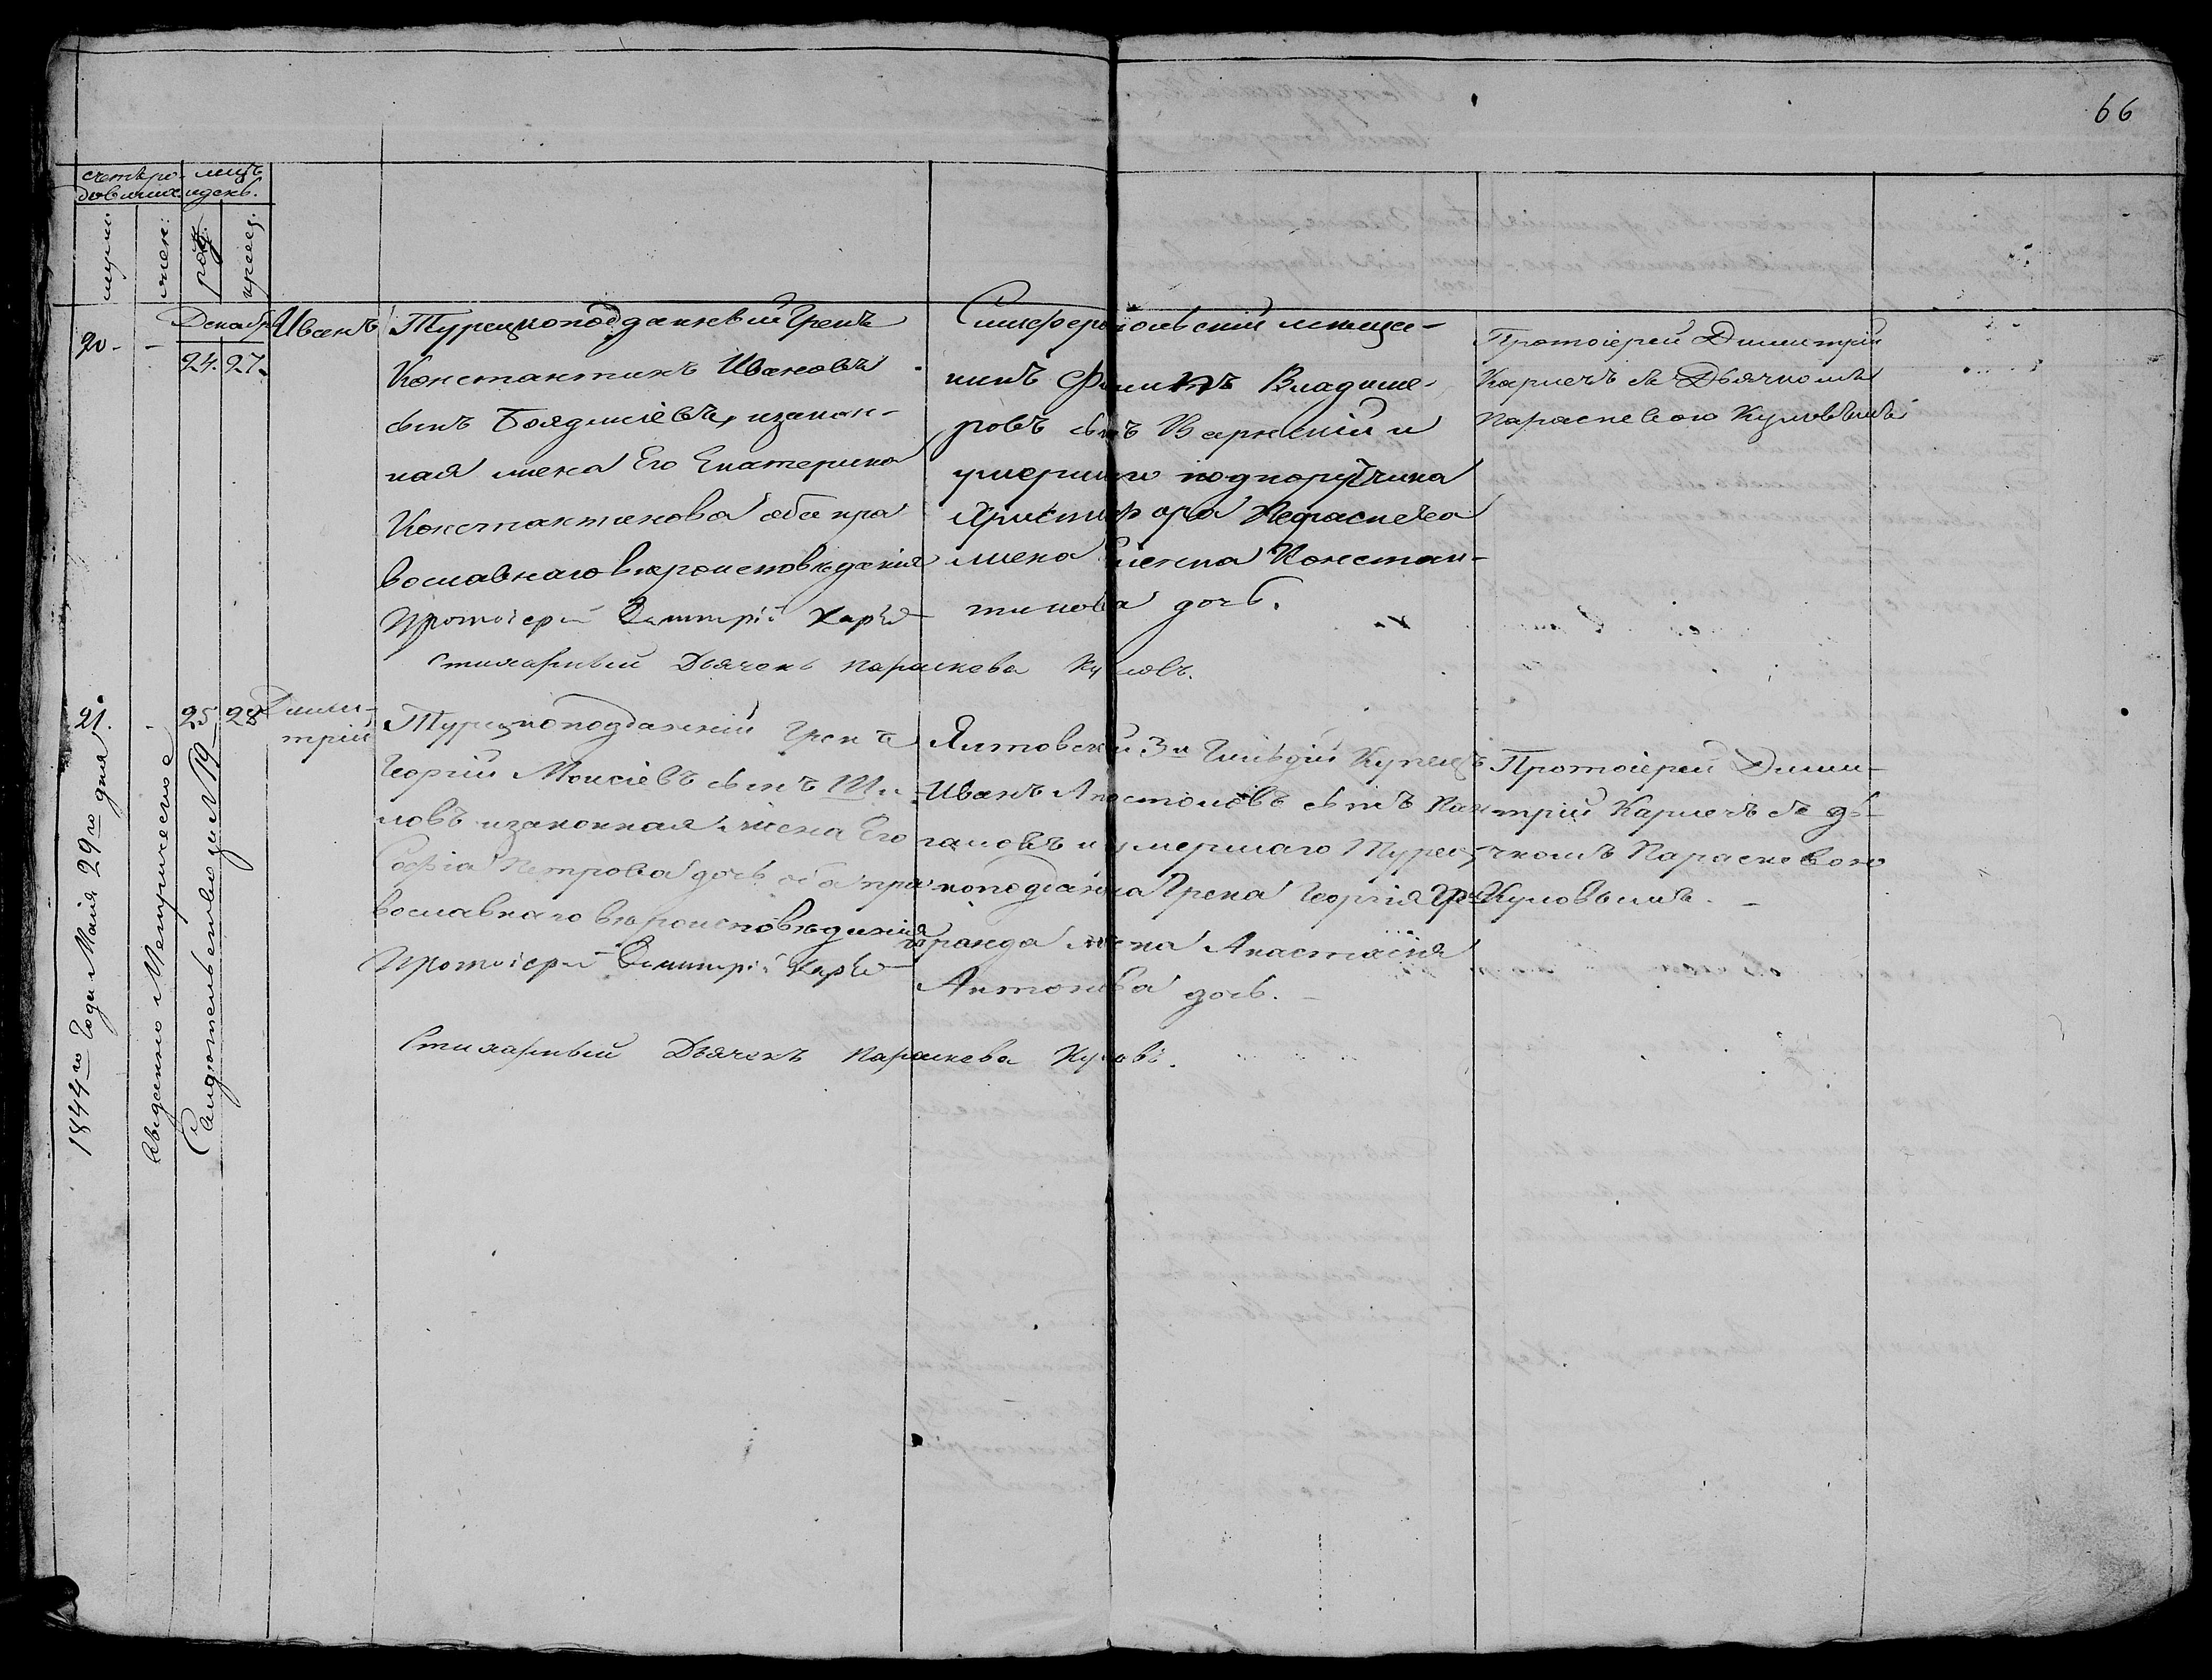 66
счетъ ро- мцъ
дившихся идень.
мужи.
жен:
рожд.
крещ.
20. - Декабрь
24. 27.
Иванъ
Турецкоподданный Грекъ
Константинъ Ивановъ
сынъ изакон-
ная жена Его Екатерина
Константинова оба пра
вославнаго вероисповеданія
Протоіерей Димитрій
Стихарный Дьячекъ Параскева
Симферопольский меща-
нинъ Филипъ Владиме-
ровъ сынъ Варнский и
умершаго подпоручика
Христифора
жена Елена Констан-
тинова дочь.
Протоіерей Димитрій
Карпечъ съ Дьячкомъ
Параскевою Кумовымъ
21. - 25 28
Дими-
трій
Турецкоподданний Грекъ
Георгій Моисіевъ сынъ
ловъ изаконная жена Его
Софіа Петрова дочь оба пра
вославнаго вероисповеданія
Протоіерей Димитрій
Стихарный Дьячекъ Параскева
Ялтовский 3й Гильдіи Купецъ
Иванъ Апостоловъ сынъ
умершаго Турец
коподданна Грека Георгія
жена Анастасія
Антонова дочь.
Протоіерей Дими-
трій Карпечъ съ дь-
чкомъ Параскевою
Кумовымъ.
1844го Года Маія 29го дня
Выденно Метрическое
Свидетельство за № 19